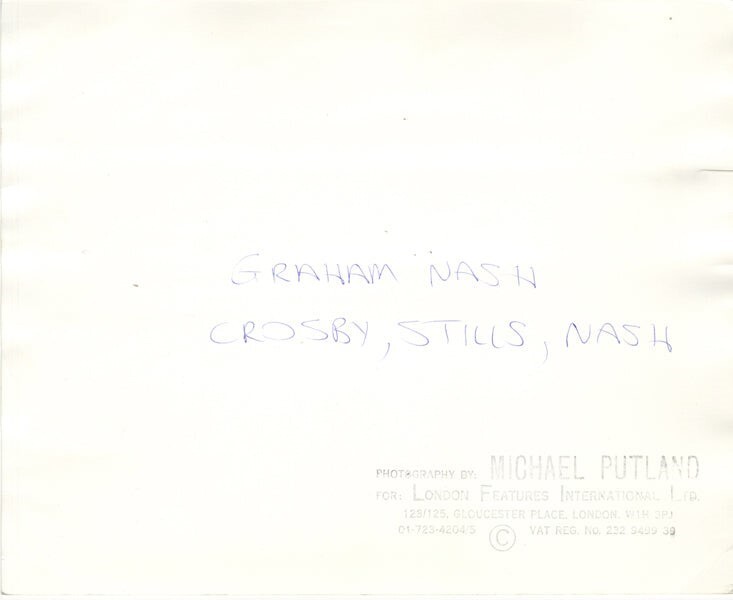 GRAHAM NASH
CROSBY, STILLS, NASH
PHOTOGRAPHY BY: MICHAEL PUTLAND
FOR: LONDON FEATURES INTERNATIONAL LTD.
125/125, GLOUCESTER PLACE, LONDON. W1H 3PJ
01-723-4204/5 © VAT REG. NO. 232 9499 39